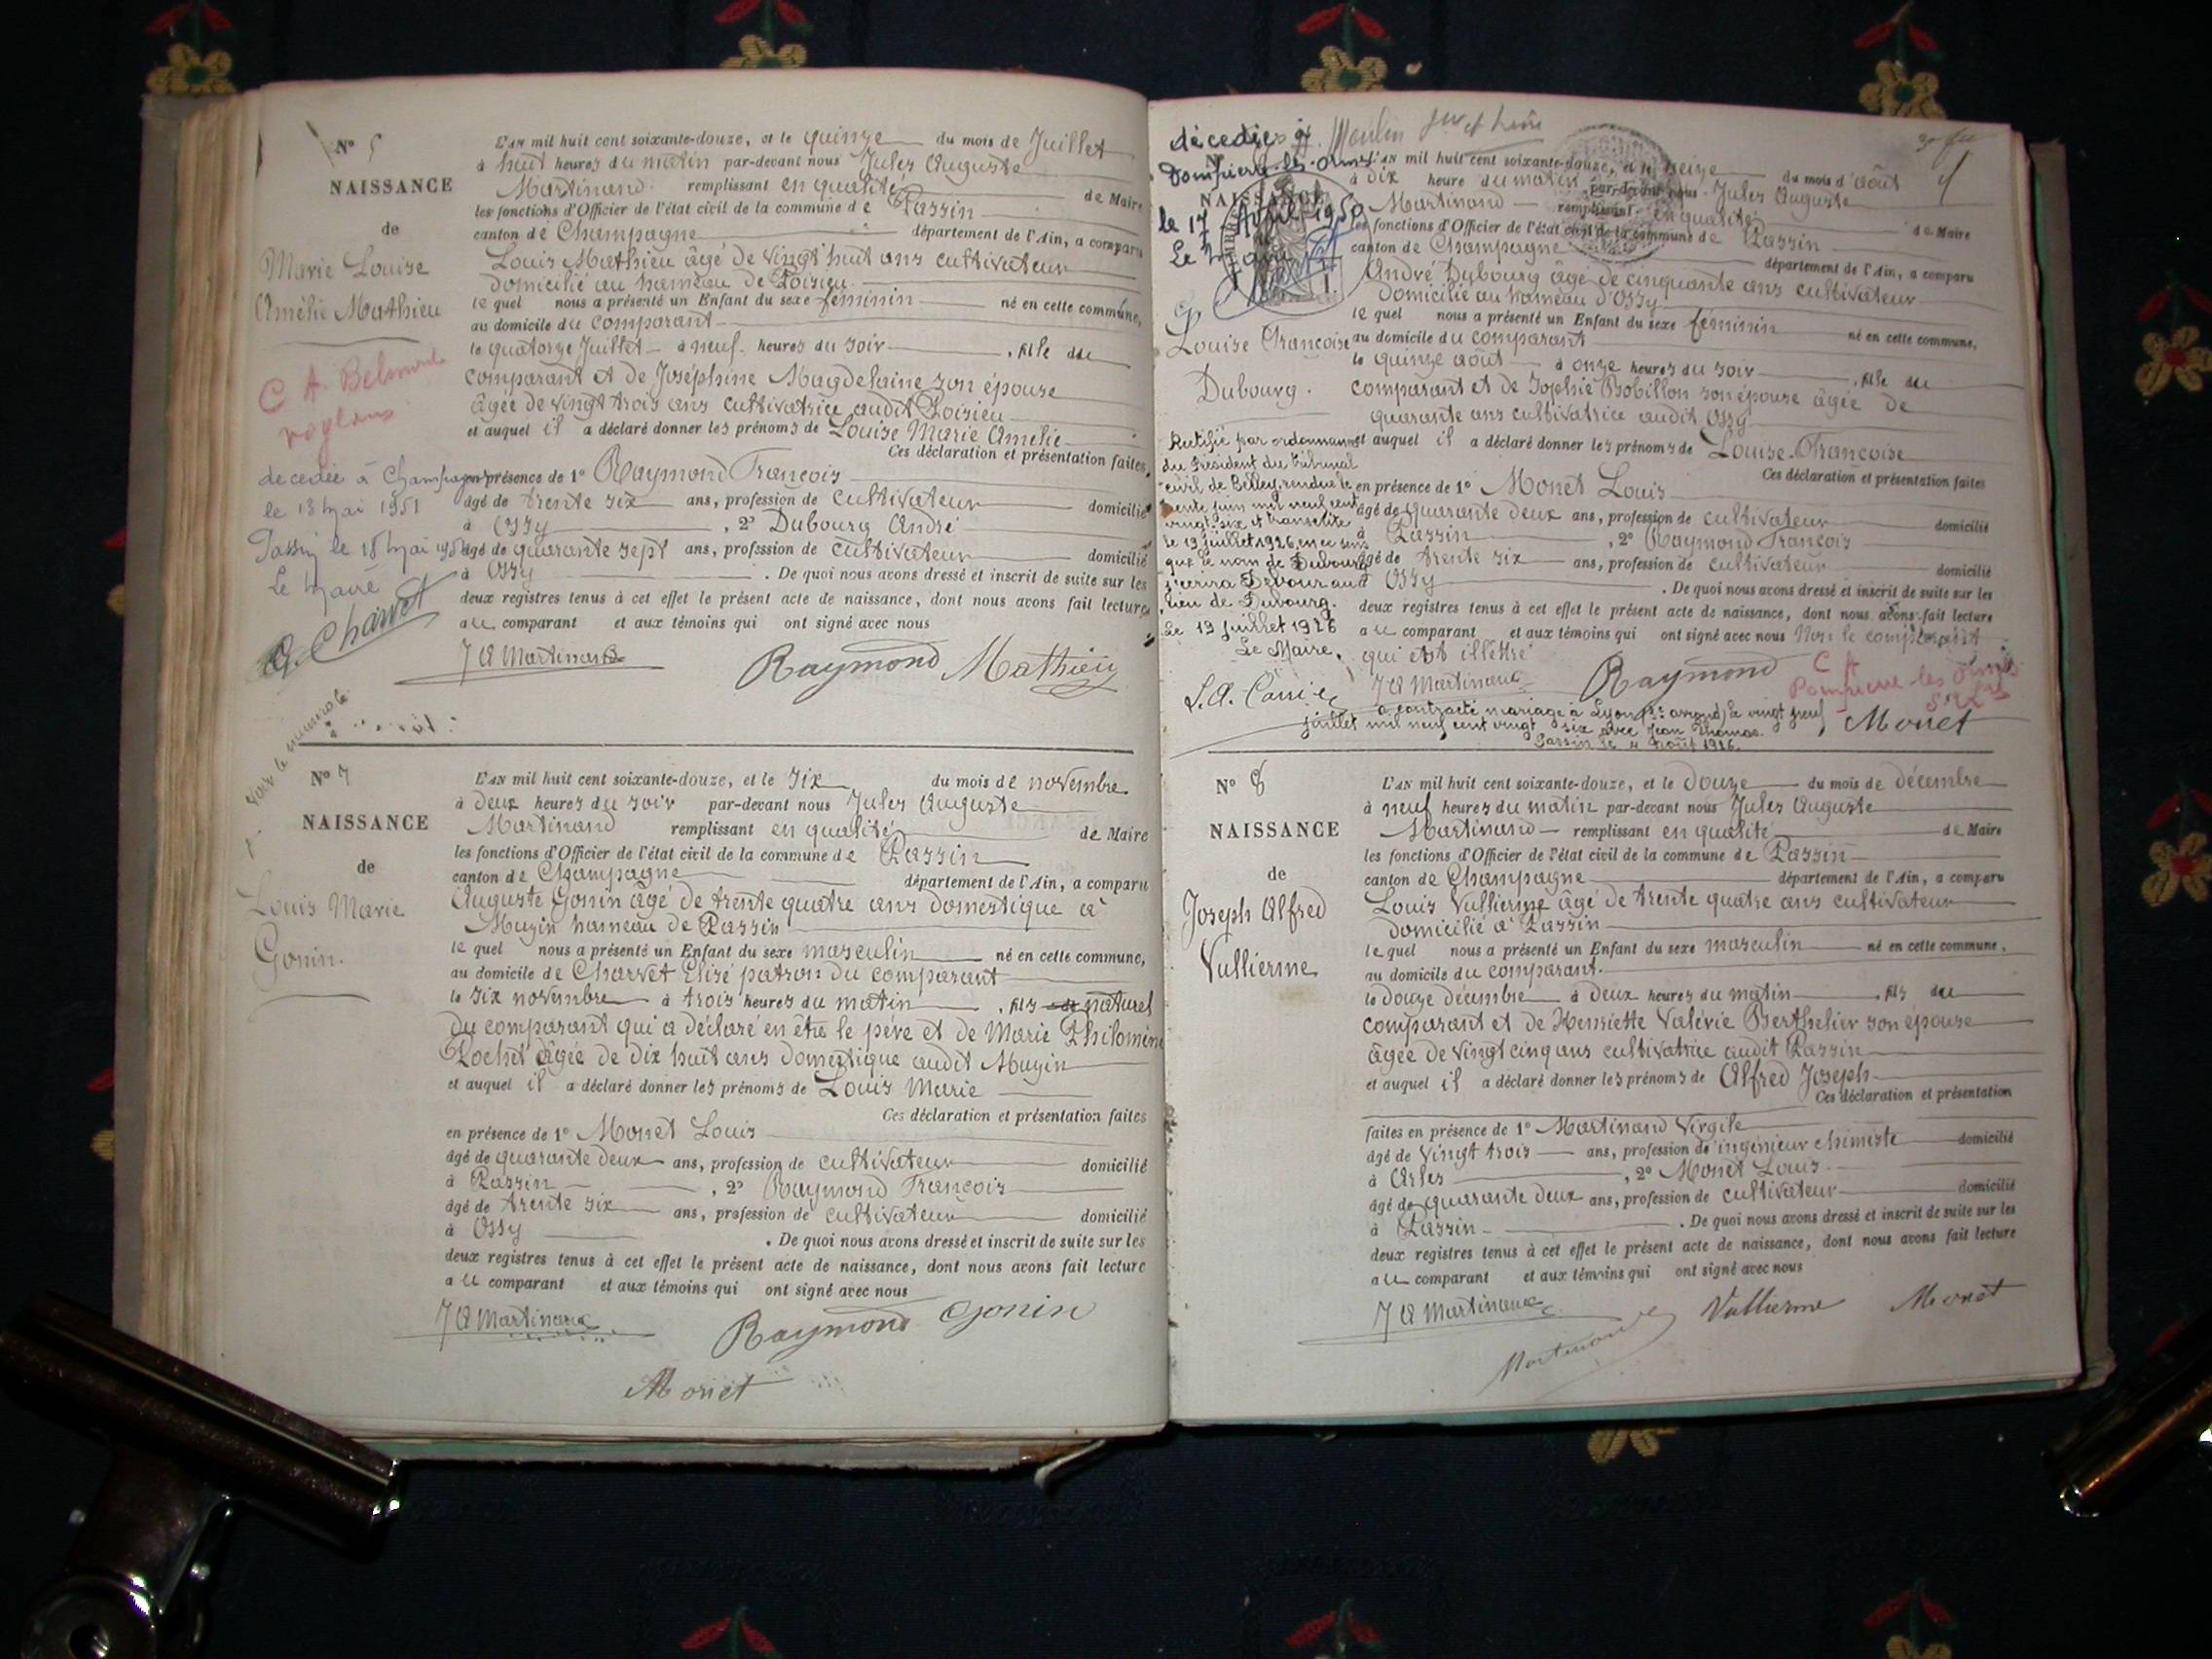 N° 5
NAISSANCE
de
Marie Louise
Amélie Mathieu
C A Belmont
décédée à Champagne
le 13 mai 1951
Passin le 18 mai 1951
Le maire
G. Charvet
L'AN mil huit cent soixante-douze, et le quinze du mois de Juillet
à huit heures du matin par-devant nous Jules Auguste
Martinand remplissant en qualité de Maire
les fonctions d'Officier de l'état civil de la commune de Passin
canton de Champagne département de l'Ain, a comparu
Louis Mathieu âgé de vingt huit ans cultivateur
domicilié au hameau de Poisieu
lequel nous a présenté un Enfant du sexe féminin né en cette commune,
au domicile du comparant
le quatorze Juillet à neuf heures du soir, fille du
comparant et de Joséphine Magdelaine son épouse
âgée de vingt trois ans cultivatrice audit Poisieu
et auquel il a déclaré donner les prénoms de Louise Marie Amélie
Ces déclaration et présentation faites
en présence de 1° Raymond François
âgé de trente six ans, profession de cultivateur domicilié
à Ossy, 2° Dubourg André
âgé de quarante sept ans, profession de cultivateur domicilié
à Ossy. De quoi nous avons dressé et inscrit de suite sur les
deux registres tenus à cet effet le présent acte de naissance, dont nous avons fait lecture
au comparant et aux témoins qui ont signé avec nous
J A Martinand Raymond Mathieu
voir le numéro 6
N° 7
NAISSANCE
de
Louis Marie
Gonin.
L'AN mil huit cent soixante-douze, et le six du mois de novembre
à deux heures du soir par-devant nous Jules Auguste
Martinand remplissant en qualité de Maire
les fonctions d'Officier de l'état civil de la commune de Passin
canton de Champagne département de l'Ain, a comparu
Auguste Gonin âgé de trente quatre ans domestique à
Muzin hameau de Passin
lequel nous a présenté un Enfant du sexe masculin né en cette commune,
au domicile de Charvet Elisé patron du comparant
le six novembre à trois heures du matin, fils de naturel
du comparant qui a déclaré en être le père et de Marie Philomène
Rochet âgée de dix huit ans domestique audit Muzin
et auquel il a déclaré donner les prénoms de Louis Marie
Ces déclaration et présentation faites
en présence de 1° Monet Louis
âgé de quarante deux ans, profession de cultivateur domicilié
à Passin, 2° Raymond François
âgé de trente six ans, profession de cultivateur domicilié
à Ossy. De quoi nous avons dressé et inscrit de suite sur les
deux registres tenus à cet effet le présent acte de naissance, dont nous avons fait lecture
au comparant et aux témoins qui ont signé avec nous
J A Martinand Raymond Gonin
Monet
décédée à
Dompierre-les-ormes
le 17 Avril 1950
Le maire
NAISSANCE
Louise Françoise
Dubourg.
Rectifié par ordonnance
du Président du tribunal
civil de Belley, rendue le
trente juin mil neuf cent
vingt six et transcrite
le 19 juillet 1926, en ce sens
que le nom de Dubourg
s'écrira Debour au
lieu de Dubourg.
Le 19 juillet 1926
Le Maire,
L'AN mil huit cent soixante-douze, et le seize du mois d'août
à dix heure du matin par-devant nous Jules Auguste
Martinand remplissant en qualité de Maire
les fonctions d'Officier de l'état civil de la commune de Passin
canton de Champagne département de l'Ain, a comparu
André Dubourg âgé de cinquante ans cultivateur
domicilié au hameau d'Ossy
lequel nous a présenté un Enfant du sexe féminin né en cette commune,
au domicile du comparant
le quinze août à onze heures du soir, fille du
comparant et de Sophie Bobillon son épouse âgée de
quarante ans cultivatrice audit Ossy
et auquel il a déclaré donner les prénoms de Louise Françoise
Ces déclaration et présentation faites
en présence de 1° Monet Louis
âgé de quarante deux ans, profession de cultivateur domicilié
à Passin, 2° Raymond François
âgé de trente six ans, profession de cultivateur domicilié
à Ossy. De quoi nous avons dressé et inscrit de suite sur les
deux registres tenus à cet effet le présent acte de naissance, dont nous avons fait lecture
au comparant et aux témoins qui ont signé avec nous Non le comparant
qui est illétré
J A Martinand Raymond Monet
C A
Dompierre les Ormes
S. et L.
a contracté mariage à Lyon (2e arrond) le vingt neuf
juillet mil neuf cent vingt six avec Jean Thomas.
Passin le 4 Août 1926.
N° 8
NAISSANCE
de
Joseph Alfred
Vullierme
L'AN mil huit cent soixante-douze, et le douze du mois de décembre
à neuf heures du matin par-devant nous Jules Auguste
Martinand remplissant en qualité de Maire
les fonctions d'Officier de l'état civil de la commune de Passin
canton de Champagne département de l'Ain, a comparu
Louis Vullierme âgé de trente quatre ans cultivateur
domicilié à Passin
lequel nous a présenté un Enfant du sexe masculin né en cette commune,
au domicile du comparant.
le douze décembre à deux heures du matin, fils du
comparant et de Henriette Valérie Berthelier son épouse
âgée de vingt cinq ans cultivatrice audit Passin
et auquel il a déclaré donner les prénoms de Alfred Joseph
Ces déclaration et présentation
faites en présence de 1° Martinand Virgile
âgé de vingt trois ans, profession d'ingénieur chimiste domicilié
à Arles, 2° Monet Louis
âgé de quarante deux ans, profession de cultivateur domicilié
à Passin. De quoi nous avons dressé et inscrit de suite sur les
deux registres tenus à cet effet le présent acte de naissance, dont nous avons fait lecture
au comparant et aux témoins qui ont signé avec nous
J A Martinand Martinand Vullierme Monet